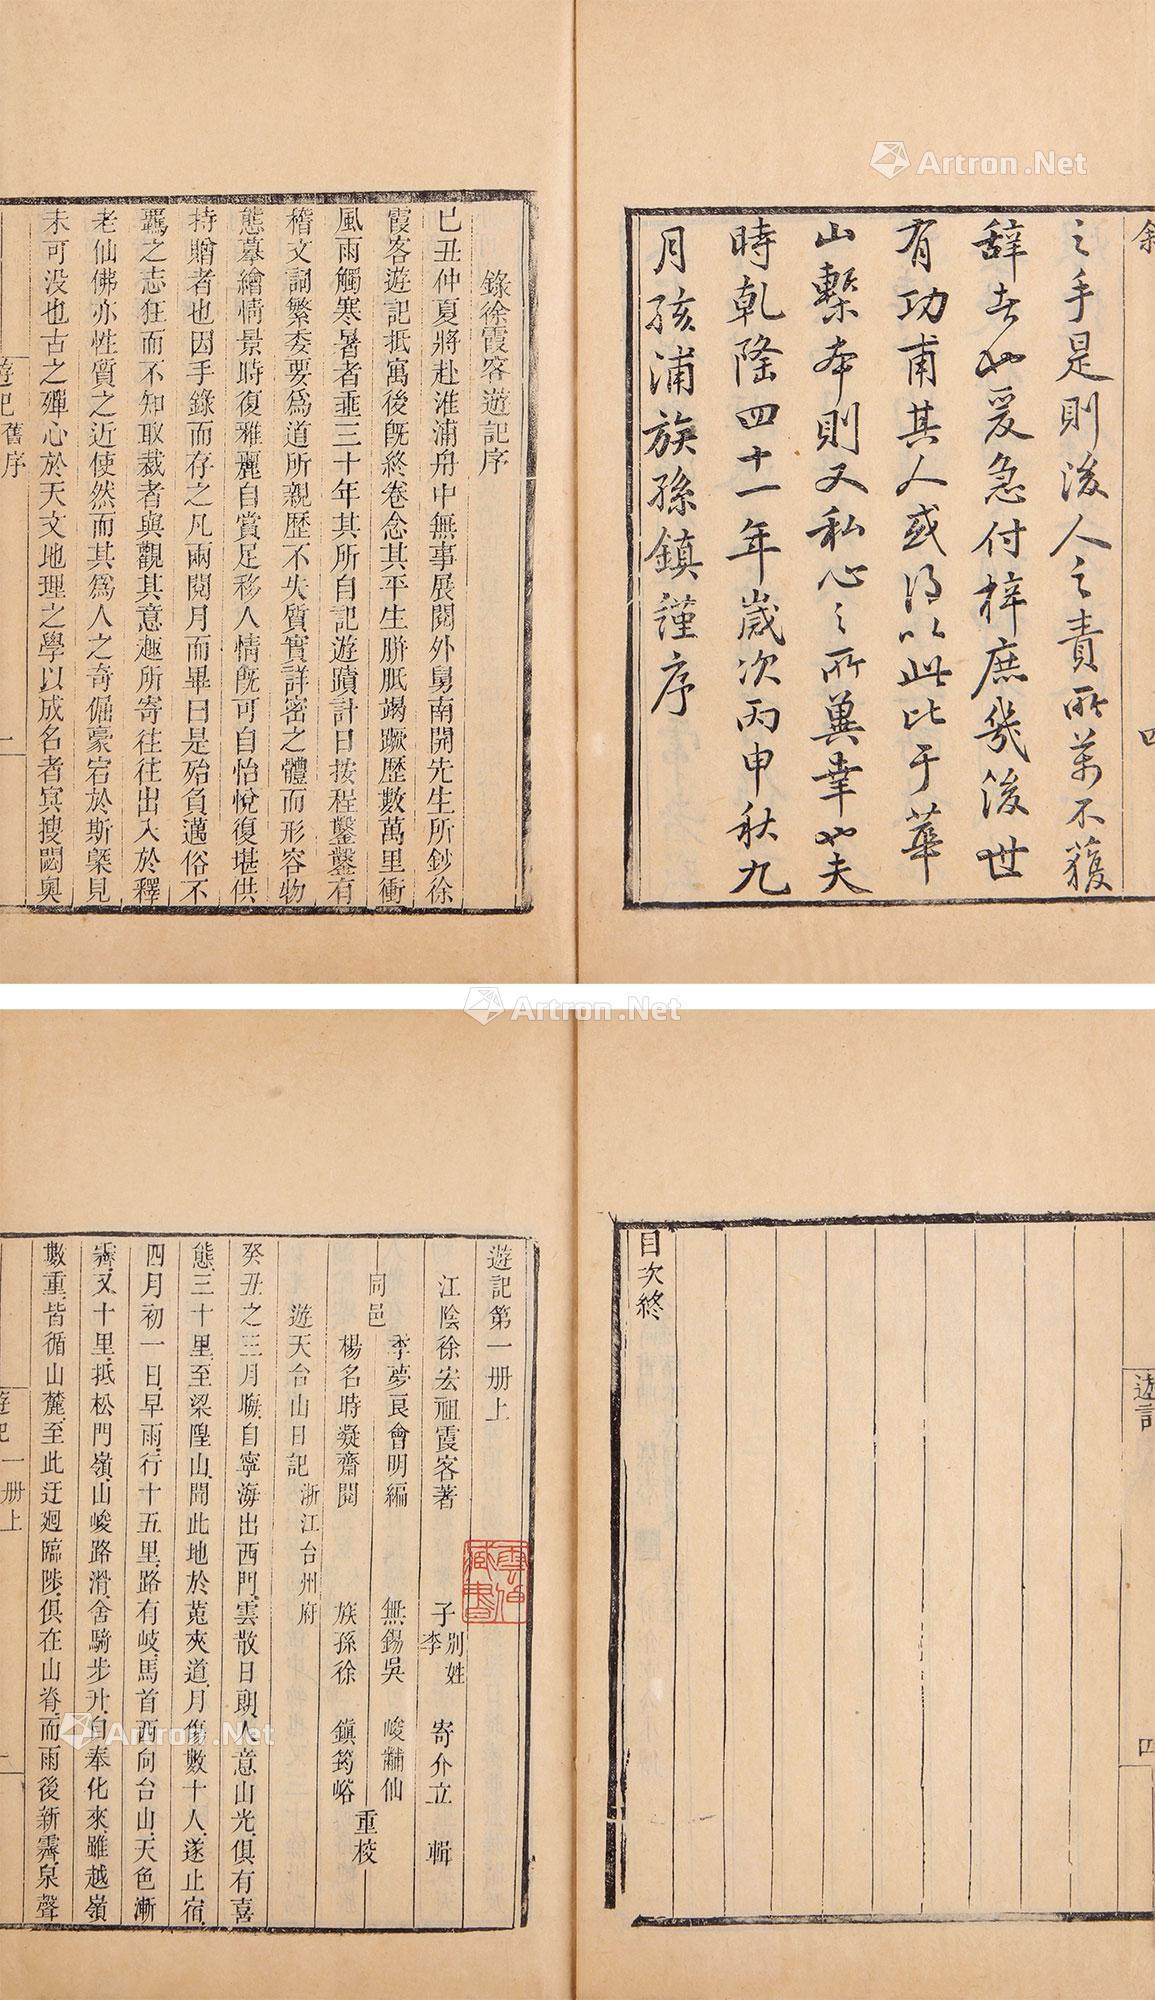 敘
四
之手是則後人之責所萬不獲
辭者也爰急付梓庶幾後世
有功甫其人或得以此比于華
山槧本則又私心之所冀幸也夫
時乾隆四十一年歲次丙申秋九
月孩浦族孫鎮謹序
錄徐霞客遊記序
已丑仲夏將赴淮浦舟中無事展閱外舅南開先生所鈔徐
霞客遊記抵寓後旣終卷念其平生胼胝竭蹶歷數萬里衝
風雨觸寒暑者垂三十年其所自記遊蹟計日按程鑿鑿有
稽文詞繁委要爲道所親歷不失質實詳密之體而形容物
態摹繪情景時復雅麗自賞足移人情旣可自怡悅復堪供
持贈者也因手錄而存之凡兩閱月而畢曰是殆負邁俗不
羈之志狂而不知取裁者與觀其意趣所寄往往出入於釋
老仙佛亦性質之近使然而其爲人之奇倔豪宕於斯槩見
未可没也古之殫心於天文地理之學以成名者冥搜閟奧
遊記舊序
一
Artron.Net
Artron.Net
遊記
四
目次終
遊記第一册上
江陰徐宏祖霞客著 子 別姓李 寄介立 輯
同邑 季夢良會明編 無錫吳 峻黼仙
楊名時凝齋閱 族孫徐 鎮筠峪 重校
遊天台山日記 浙江台州府
癸丑之三月晦自寧海出西門雲散日朗人意山光俱有喜
態三十里至梁隍山聞此地於菟夾道月傷數十人遂止宿
四月初一日早雨行十五里路有岐馬首西向台山天色漸
霽又十里抵松門嶺山峻路滑舍騎步升自奉化來雖越嶺
數重皆循山麓至此迂廻臨陟俱在山脊而雨後新霽泉聲
遊記一册上
一
Artron.Net